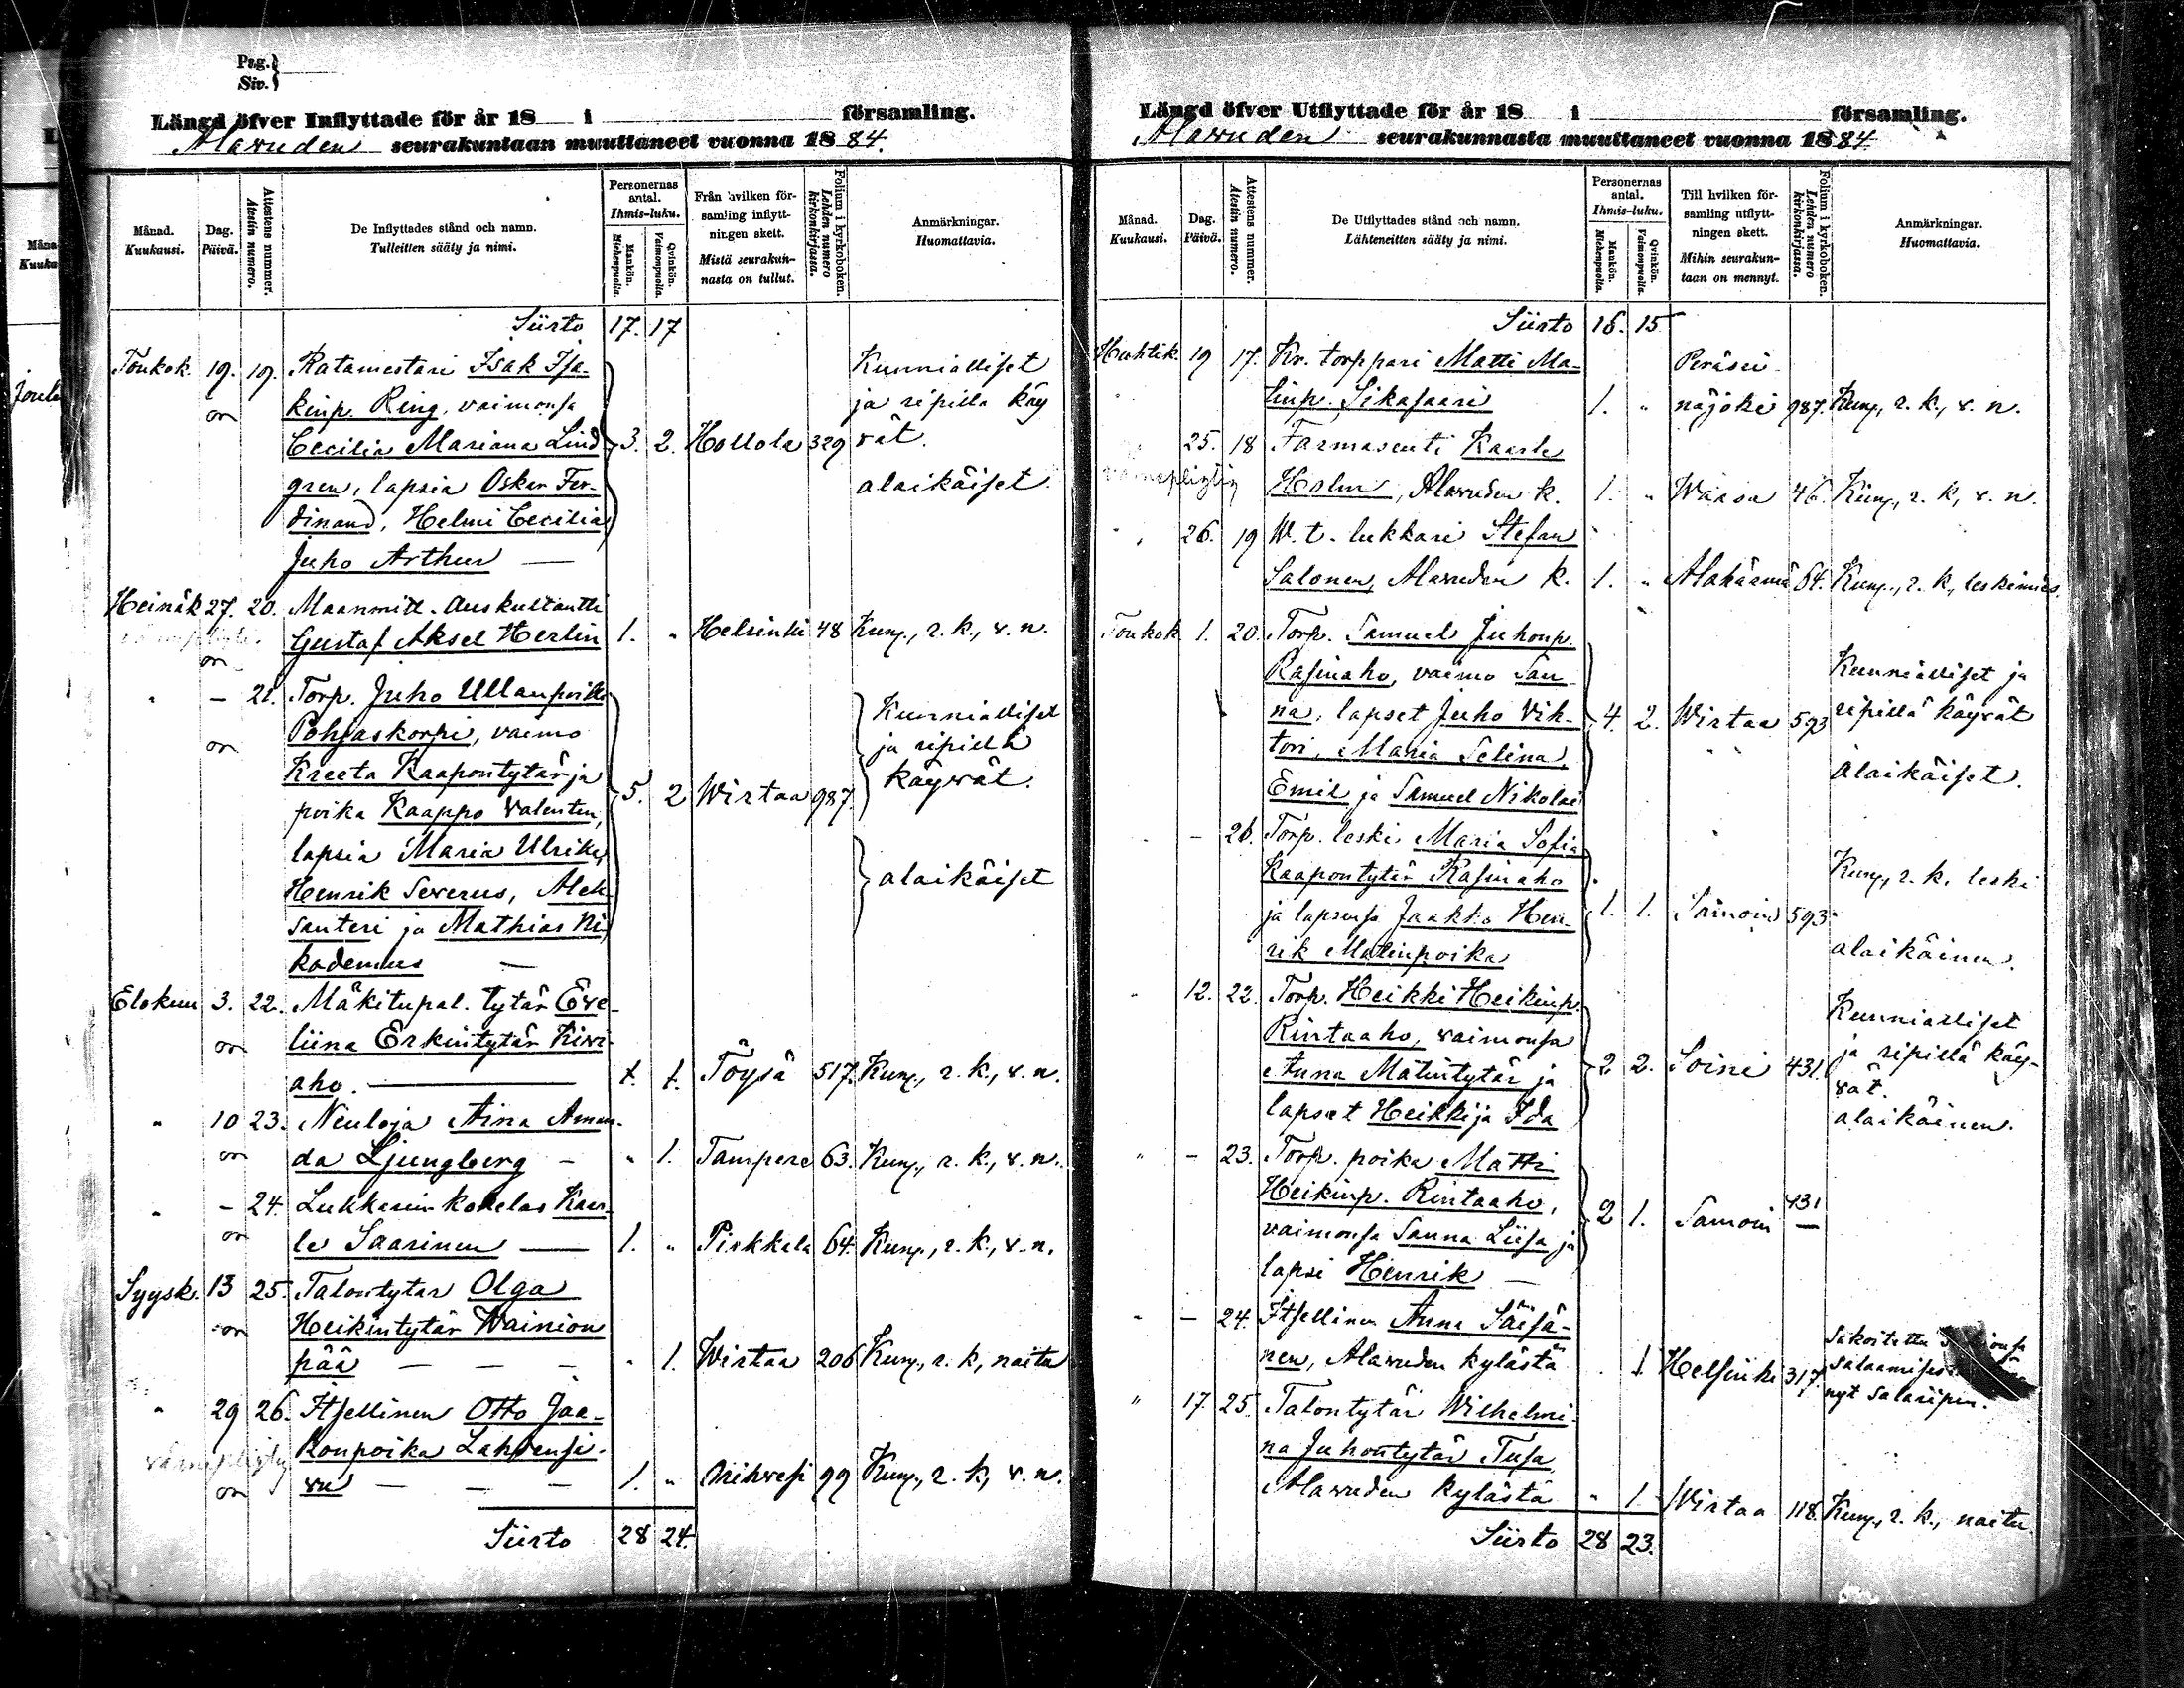 Pag.
Siv.
Längd öfver Inflyttade för år 18 i församling.
Alavuden seurakuntaan muuttaneet vuonna 1884.
Månad. Kuukausi.
Dag. Päivä.
Attestens nummer. Atestin numero.
De Inflyttades stånd och namn. Tulleitten sääty ja nimi.
Personernas antal. Ihmis-luku.
Mankön. Miehenpuolia.
Qvinkön. Vaimonpuolia.
Från hvilken församling inflyttningen skett. Mistä seurakunnasta on tullut.
Folium i kyrkoboken. Lehden numero kirkonkirjassa.
Anmärkningar. Huomattavia.
Siirto 17. 17
Toukok. 19. 19. Ratamestari Isak Isa- Kunnialliset
kinp. Ring, vaimonsa ja ripillä käy
Cecilia Mariana Lind 3. 2. Hollola 329 vät.
gren, lapsia Oskar Fer- alaikäiset.
dinand, Helmi Cecilia
Juho Arthur —
Heinäk 27. 20. Maanmitt. Auskultantti
Gustaf Aksel Herlin 1. " Helsinki 48 Kunn., r. k., v. n.
" — 21. Torp. Juho Ullanpoika Kunnialliset
Pohjaskorpi, vaimo ja ripillä
Kreeta Kaapontytär ja käyvät.
poika Kaappo Valentin, 5. 2 Wirtaa 987
lapsia Maria Ulrika,
Henrik Severus, Alek alaikäiset
santeri ja Mathias Ni
kodemus —
Elokuu 3. 22. Mäkitupal. tytär Eve-
liina Erkintytär Kivi-
aho. — 1. Töysä 517. Kunn., r. k., v. n.
" 10 23. Neuloja Aina Aman-
da Ljungberg — " 1. Tampere 63. Kunn., r. k., v. n.
" — 24. Lukkarin kokelas Kaar-
le Saarinen — 1. " Pirkkala 64. Kunn., r. k., v. n.
Syysk. 13 25. Talontytär Olga
Heikintytär Wainion
pää — — — " 1. Wirtaa 206 Kunn., r. k., naita
" 29 26. Itsellinen Otto Jaa-
konpoika Lahdensi-
vu — — — 1. " Orihvesi 99 Kunn., r. k., v. n.
Siirto 28 24.
Längd öfver Utflyttade för år 18 i församling.
Alavuden seurakunnasta muuttaneet vuonna 1884.
Månad. Kuukausi.
Dag. Päivä.
Attestens nummer. Atestin numero.
De Utflyttades stånd och namn. Lähteneitten sääty ja nimi.
Personernas antal. Ihmis-luku.
Mankön. Miehenpuolia.
Qvinkön. Vaimonpuolia.
Till hvilken församling utflyttningen skett. Mihin seurakuntaan on mennyt.
Folium i kyrkoboken. Lehden numero kirkonkirjassa.
Anmärkningar. Huomattavia.
Siirto 16. 15
Huhtik. 19 17. Kr. torppari Matti Ma- Peräsei-
tinp. Sikasaari 1. " näjoki 987. Kunn., r. k., v. n.
25. 18 Farmaseuti Kaarle
värnepligtig Holm, Alavuden k. 1. " Waasa 46. Kunn., r. k., v. n.
" 26. 19 W. t. lukkari Stefan
Salonen, Alavuden k. 1. " Alahärmä 64. Kunn., r. k., leskimies.
Toukok. 1. 20. Torp. Samuel Juhonp.
Rasinaho, vaimo San- Kunnialliset ja
na, lapset Juho Vik- 4. 2. Wirtaa 593 ripillä käyvät
tori, Maria Selina,
Emil ja Samuel Nikolai alaikäiset.
" — 21. Torp. leski Maria Sofia
Kaapontytär Rasinaho Kunn., r. k. leski
ja lapsensa Jaakko Hen- 1. 1. Samoin 593
rik Matinpoika alaikäinen.
" 12. 22. Torp. Heikki Heikinp.
Rintaaho, vaimonsa Kunnialliset
Anna Matintytär ja 2 2. Soini 431. ja ripillä käy-
vät.
lapset Heikki ja Ida alaikäinen.
" — 23. Torp. poika Matti
Heikinp. Rintaaho, 431
vaimonsa Sanna Liisa ja 2 1. Samoin —
lapsi Henrik —
" — 24. Itsellinen Anna Säisä-
nen, Alavuden kylästä 1 Helsinki 317.
nyt salaripin.
" 17. 25. Talontytär Wilhelmi-
na Juhontytär Tusa,
Alavuden kylästä " 1 Wirtaa 118. Kunn., r. k., naitu
Siirto 28 23.